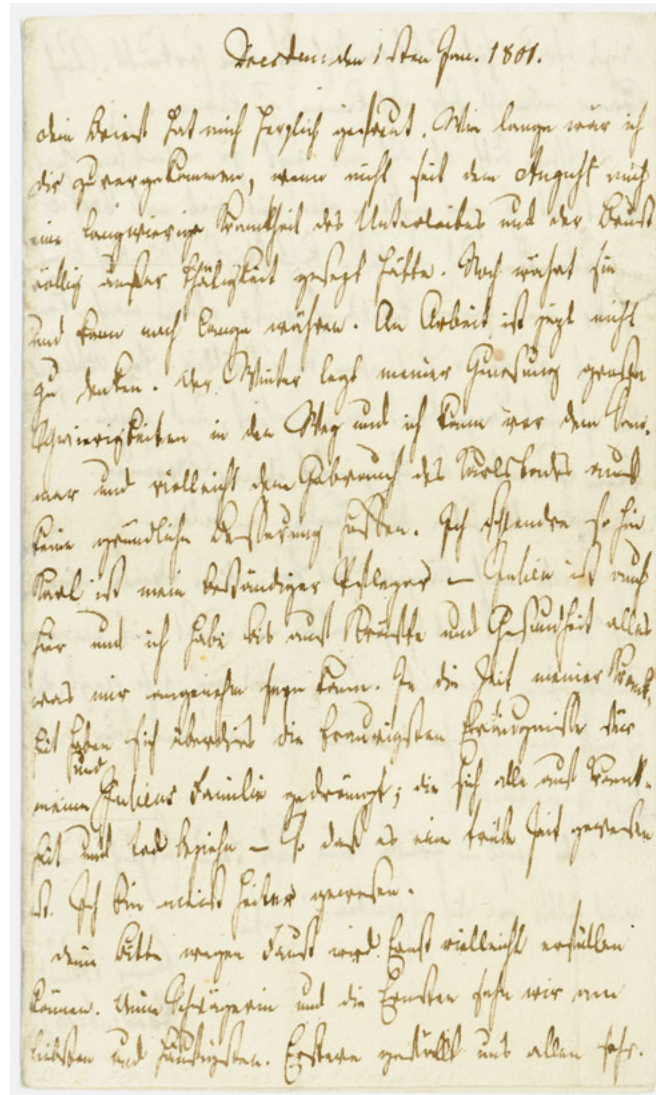 Dresden: den 1sten Jan. 1801.
Dein Brief hat mich herzlich gefreut. Wie lange wär ich
dir zuvorgekommen, wenn nicht seit dem August mich
eine langwierige Krankheit des Unterleibes und der Brust
völlig außer Thätigkeit gesezt hätte. Noch währt sie
und kann noch lange währen. An Arbeit ist jezt nicht
zu denken. Der Winter legt meiner Genesung große
Schwierigkeiten in den Weg und ich kann vor dem Som-
mer und vielleicht dem Gebrauch des Karlsbades auf
keine gründliche Besserung hoffen. Ich schlendre so hin
Karl ist mein beständiger Pfleger – Julien ist auch
hier und ich habe bis auf Kräfte und Gesundheit alles
was mir angenehm seyn kann. In die Zeit meiner Krank-
heit haben sich überdies die traurigsten Eräugnisse für
meine und Juliens Familie gedrängt; die sich alle auf Krank-
heit und Tod beziehn – so daß es eine trübe Zeit gewesen
ist. Ich bin meist heiter gewesen.
Deine Bitte wegen Faust wird Ernst vielleicht erfüllen
können. Deine Schwägerin und die Ernsten sehn wir am
liebsten und häufigsten. Erstere gefällt uns allen sehr.